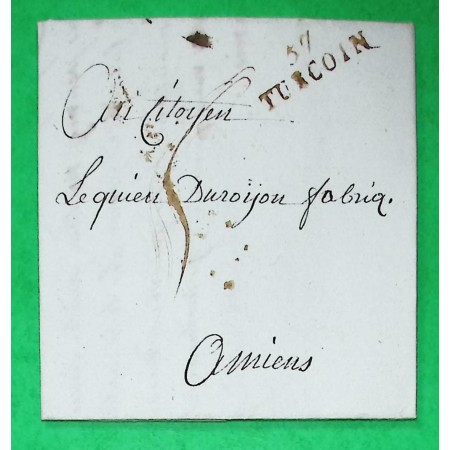 57
TURCOIN
Au Citoyen
Lequien Duroijon fabriq.
Amiens